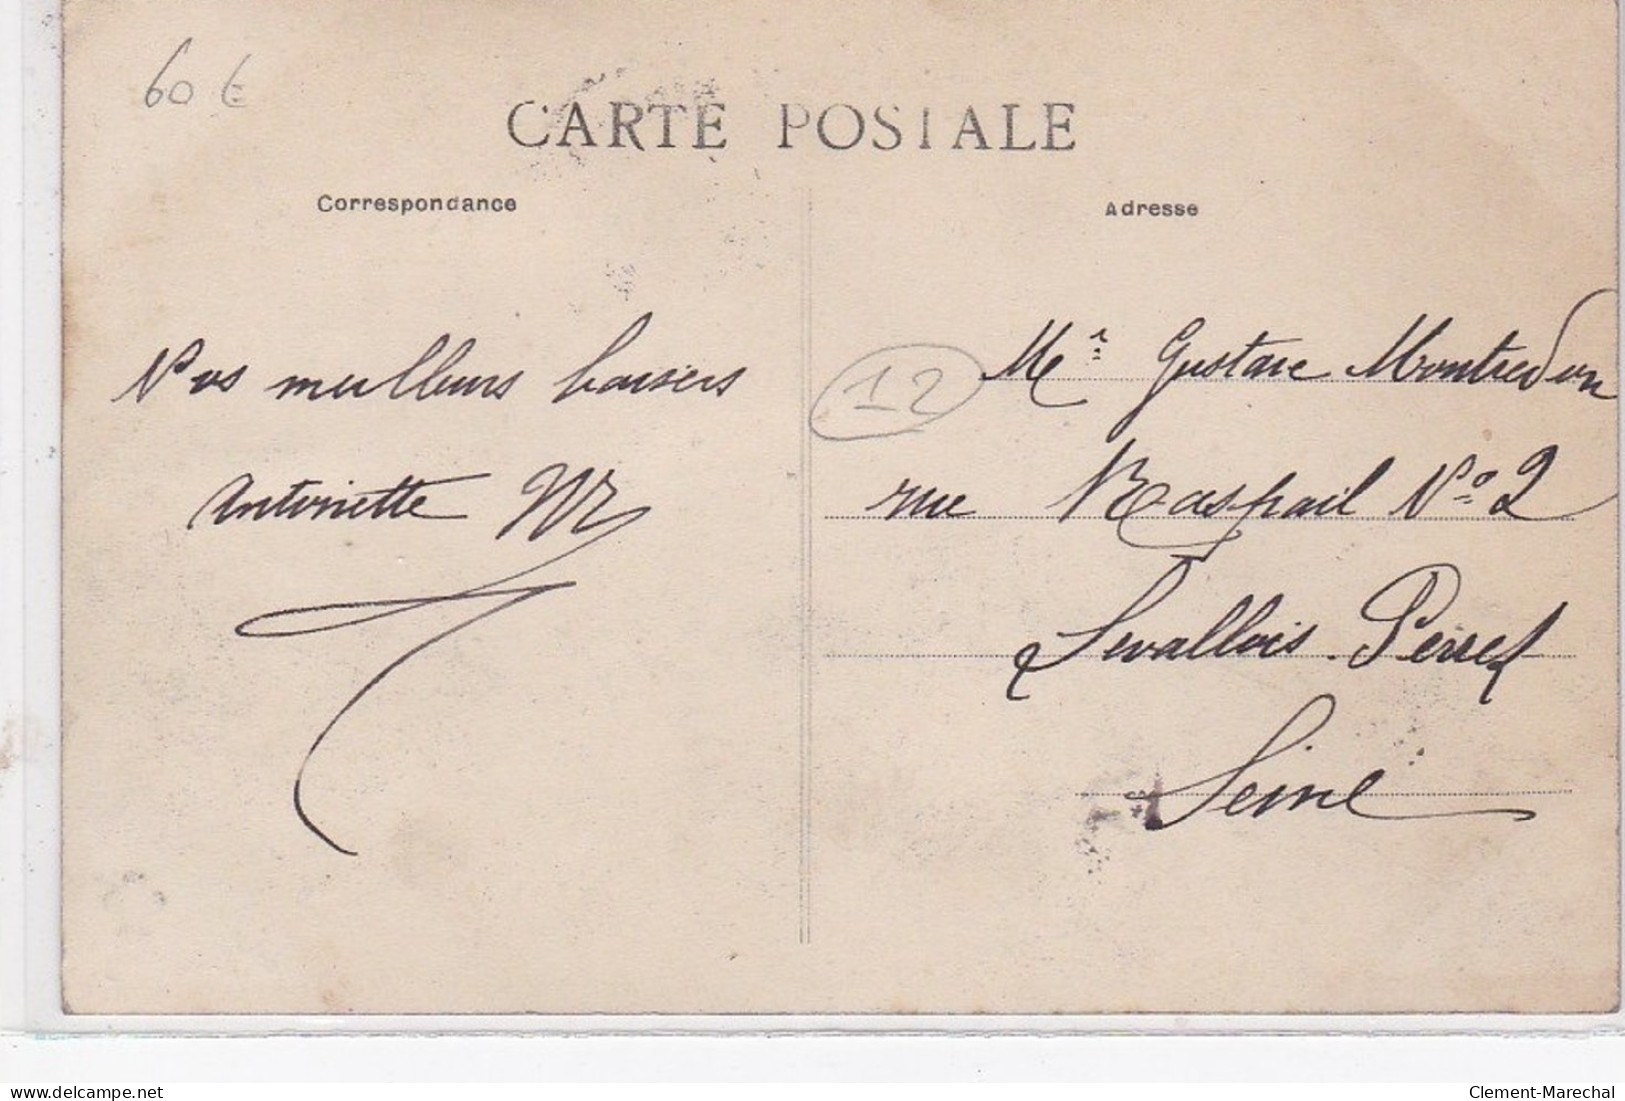 60 €
CARTE POSTALE
Correspondance
Adresse
Nos meilleurs baisers
Antoinette
12
Mr: Gustave Montredon
rue Raspail No 2
Levallois-Perret
Seine
Clement-Marechal